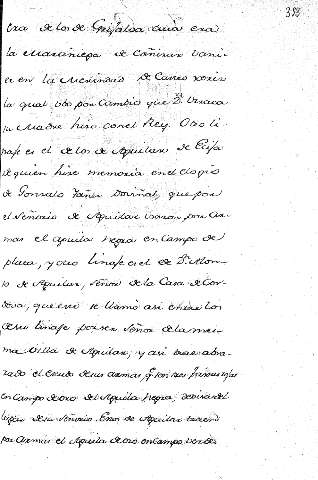 388
era de los de Grijalva cuia era
la de Cañizar vani-
es en la Merindad de Castro xeriz
la qual, obo por Cambio que Dª Urraca
su Madre hizo con el Rey. Otro li-
naje es el de los de Aguilar de
de quien hize memoria en el elogio
de Gonzalo Yañez Doviñal, que por
el Señorio de Aguilar usaron por ar-
mas el aguila negra en Campo de
plata, y otro linaje es el de Dn. Alon-
so de Aguilar, Señor de la Casa de Cor-
dova, que este se llamó asi entre los
de su linaje por ser Señor de la mis-
ma Villa de Aguilar; y asi trae abra-
zado el escudo de sus armas, q son tres fajas rojas
en Campo de oro del Aguila negra,
de su Señorio. Estos de Aguilar traen
por Armas el Aguila de oro en Campo verde